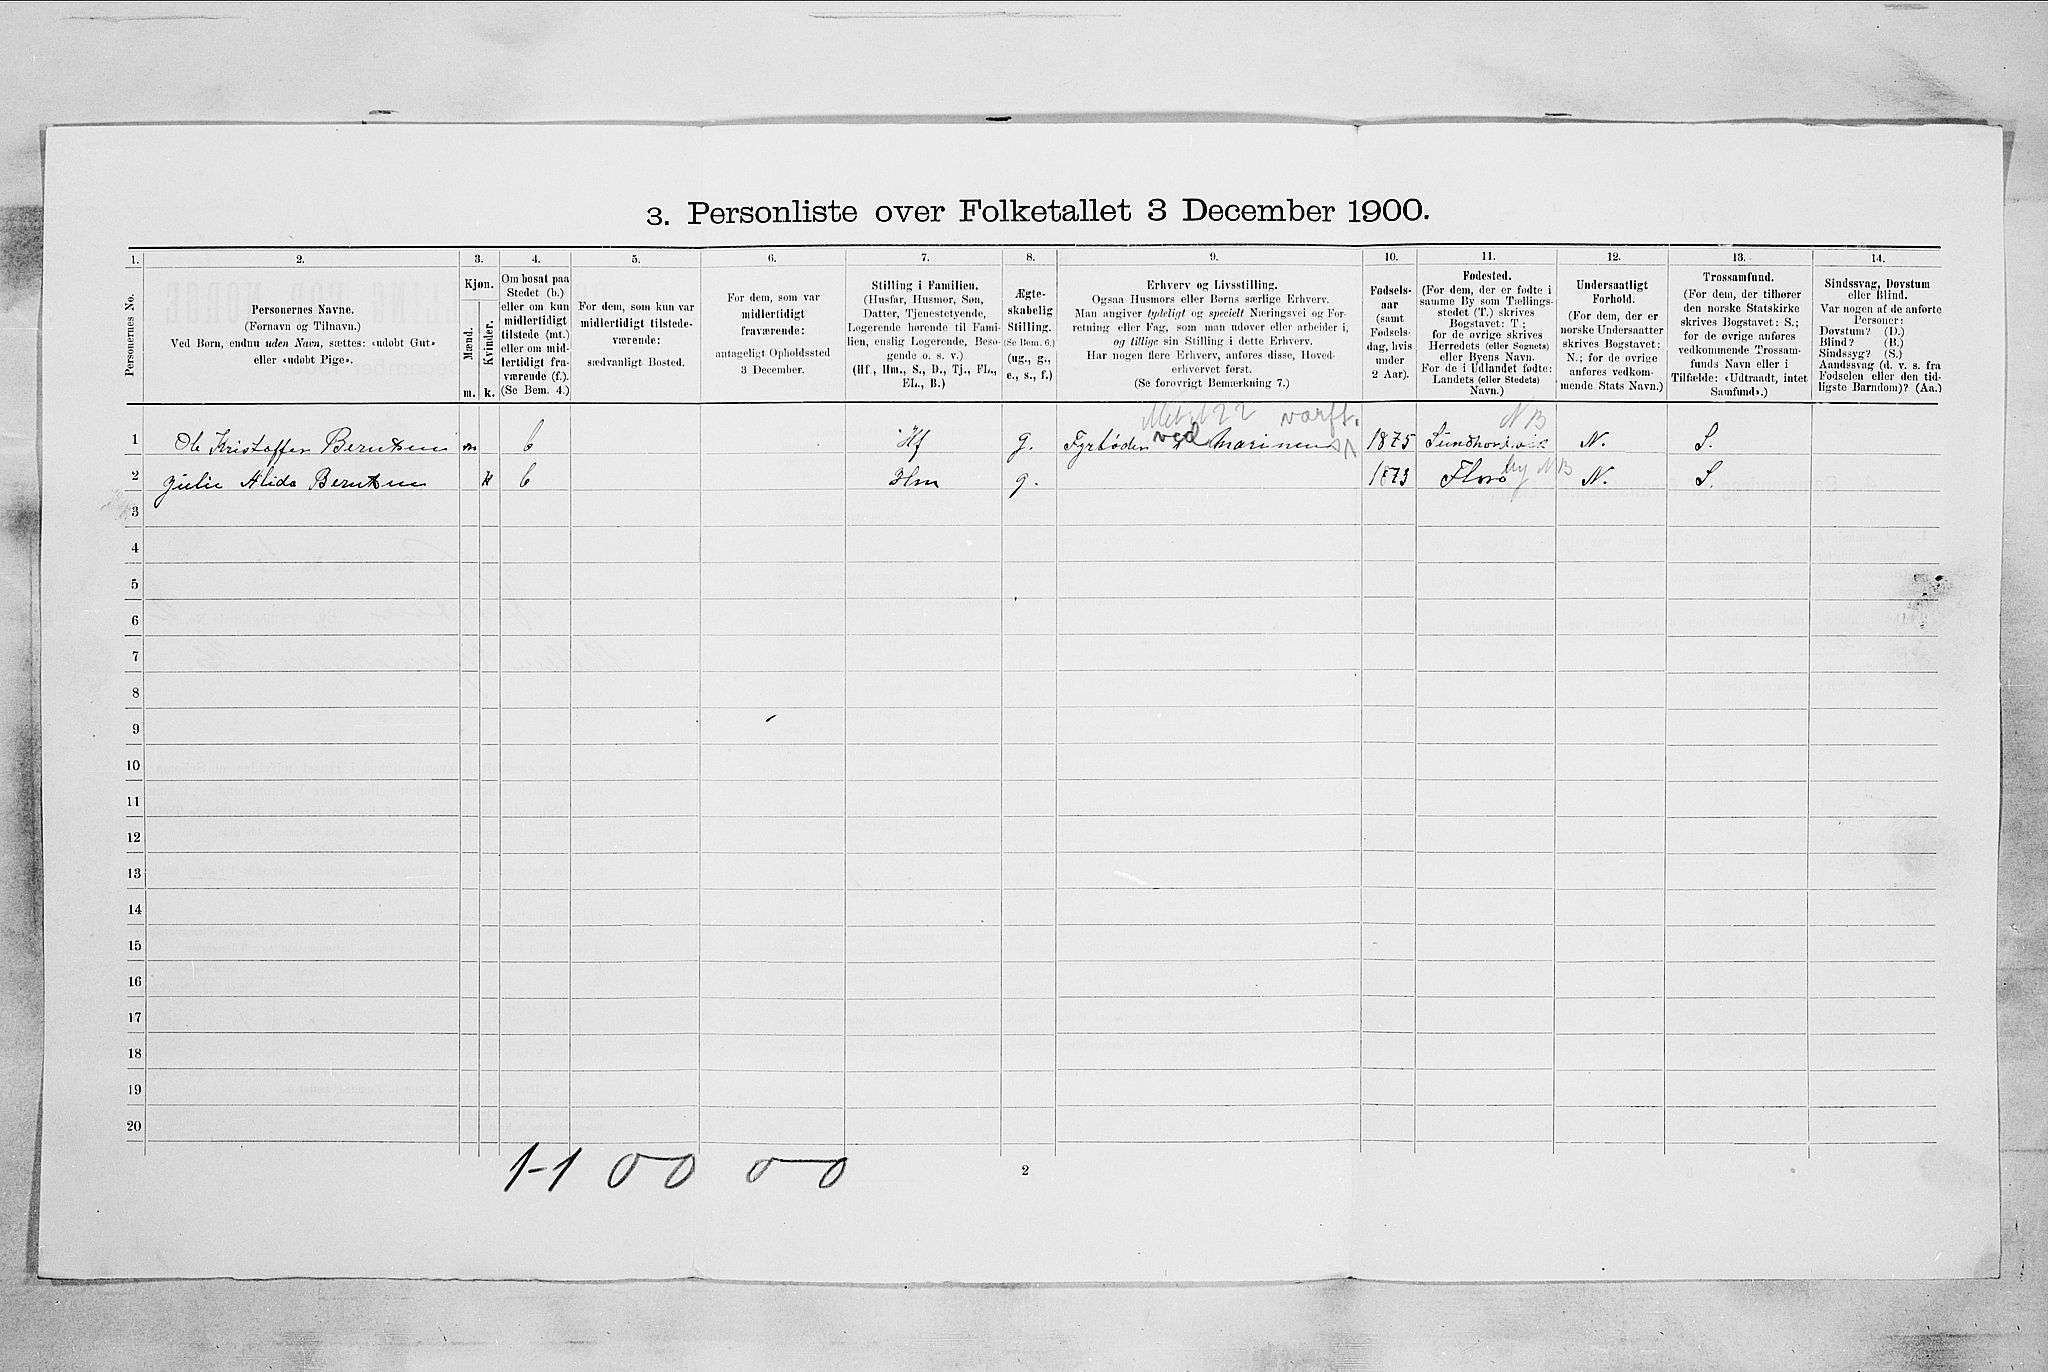 3. Personliste over Folketallet 3 December 1900.
1. 2. 3. 4. 5. 6. 7. 8. 9. 10. 11. 12. 13. 14.
Personernes No.
Personernes Navne.
(Fornavn og Tilnavn.)
Ved Børn, endnu uden Navn, sættes: «udøbt Gut»
eller «udøbt Pige».
Kjøn.
Mænd.
Kvinder.
m. k.
Om bosat paa
Stedet (b.)
eller om kun
midlertidigt
tilstede (mt.)
eller om mid-
lertidigt fra-
værende (f.).
(Se Bem. 4.)
For dem, som kun var
midlertidigt tilstede-
værende:
sædvanligt Bosted.
For dem, som var
midlertidigt
fraværende:
antageligt Opholdssted
3 December.
Stilling i Familien.
(Husfar, Husmor, Søn,
Datter, Tjenestetyende,
Logerende hørende til Fami-
lien, enslig Logerende, Besø-
gende o. s. v.)
(Hf., Hm., S., D., Tj., FL.,
EL., B.)
Ægte-
skabelig
Stilling.
(Se Bem. 6.)
(ug., g.,
e., s., f.)
Erhverv og Livsstilling.
Ogsaa Husmors eller Børns særlige Erhverv.
Man angiver tydeligt og specielt Næringsvei og For-
retning eller Fag, som man udøver eller arbeider i,
og tillige sin Stilling i dette Erhverv.
Har nogen flere Erhverv, anføres disse, Hoved-
erhvervet først.
(Se forøvrigt Bemærkning 7.)
Fødsels-
aar
(samt
Fødsels-
dag, hvis
under
2 Aar).
Fødested.
(For dem, der er fødte i
samme By som Tællings-
stedet (T.) skrives
Bogstavet: T.;
for de øvrige skrives
Herredets (eller Sognets)
eller Byens Navn.
For de i Udlandet fødte:
Landets (eller Stedets)
Navn.)
Undersaatligt
Forhold.
(For dem, der er
norske Undersaatter
skrives Bogstavet:
N.; for de øvrige
anføres vedkom-
mende Stats Navn.)
Trossamfund.
(For dem, der tilhører
den norske Statskirke
skrives Bogstavet: S.;
for de øvrige anføres
vedkommende Trossam-
funds Navn eller i
Tilfælde: «Udtraadt, intet
Samfund».)
Sindssvag, Døvstum
eller Blind.
Var nogen af de anførte
Personer:
Døvstum? (D.)
Blind? (B.)
Sindssyg? (S.)
Aandssvag (d. v. s. fra
Fødselen eller den tid-
ligste Barndom)? (Aa.)
22 varft. NB
1 Ole Kristoffer Berntsen m b Hf g. Fyrbøder ved Marinen 1875 N. S.
2 Julie Alida Berntsen k b Hm g. 1873 Florø by NB N. S.
3
4
5
6
7
8
9
10
11
12
13
14
15
16
17
18
19
20
1-1 0-0 0-0
2